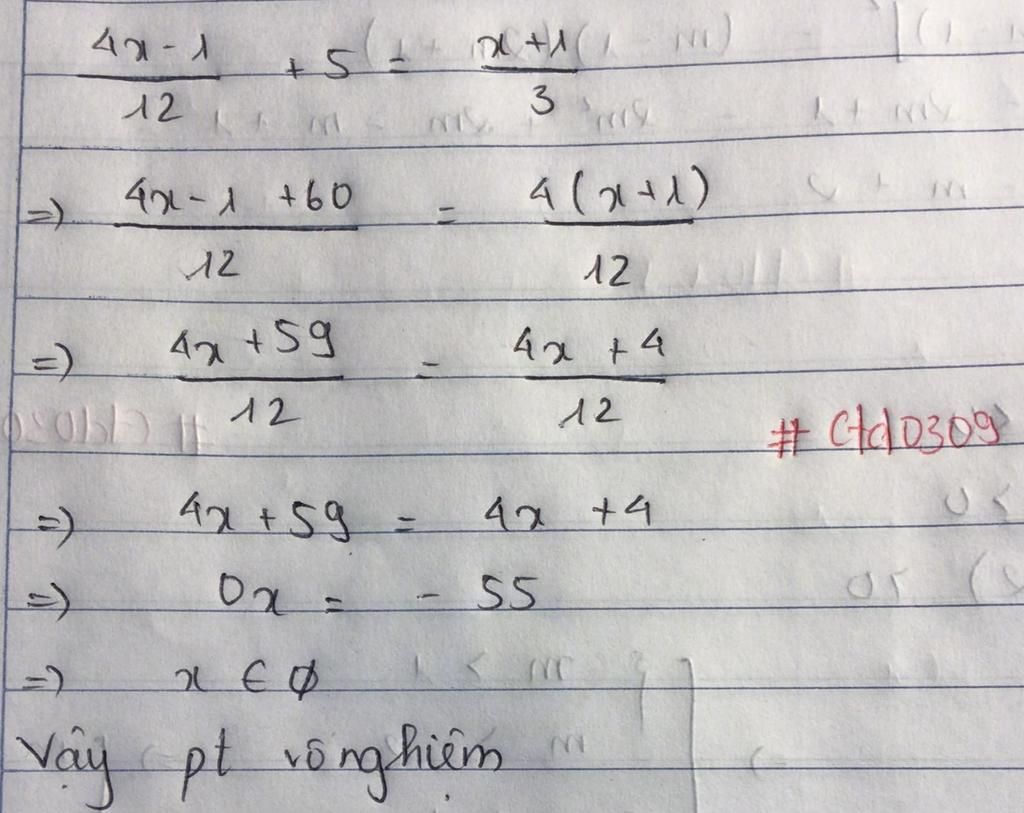 (4x - 1)/12 + 5 = (x + 1)/3
=) (4x - 1 + 60)/12 = 4(x + 1)/12
=) (4x + 59)/12 = (4x + 4)/12
# Ctd0309
=) 4x + 59 = 4x + 4
=) 0x = - 55
=) x ∈ ∅
Vậy pt vô nghiệm